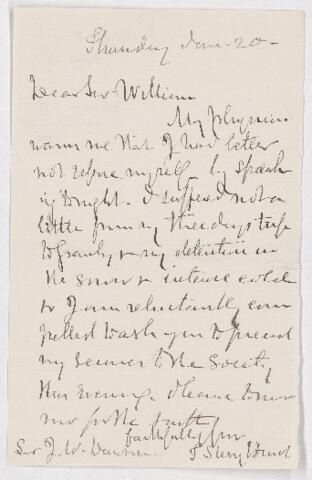 Thursday Jan - 20 -
Dear Sir William
My physician
warns me that I had better
not expose myself by speak
ing tonight. I suffered not a
little from my three days trip
to & my detention in
the snow & intense cold
& I am reluctantly com
pelled to ask you to present
my to the Society
this evening. I leave tomor
row for the South
faithfully yrs
Sir J. W. Dawson. T Sterry Hunt